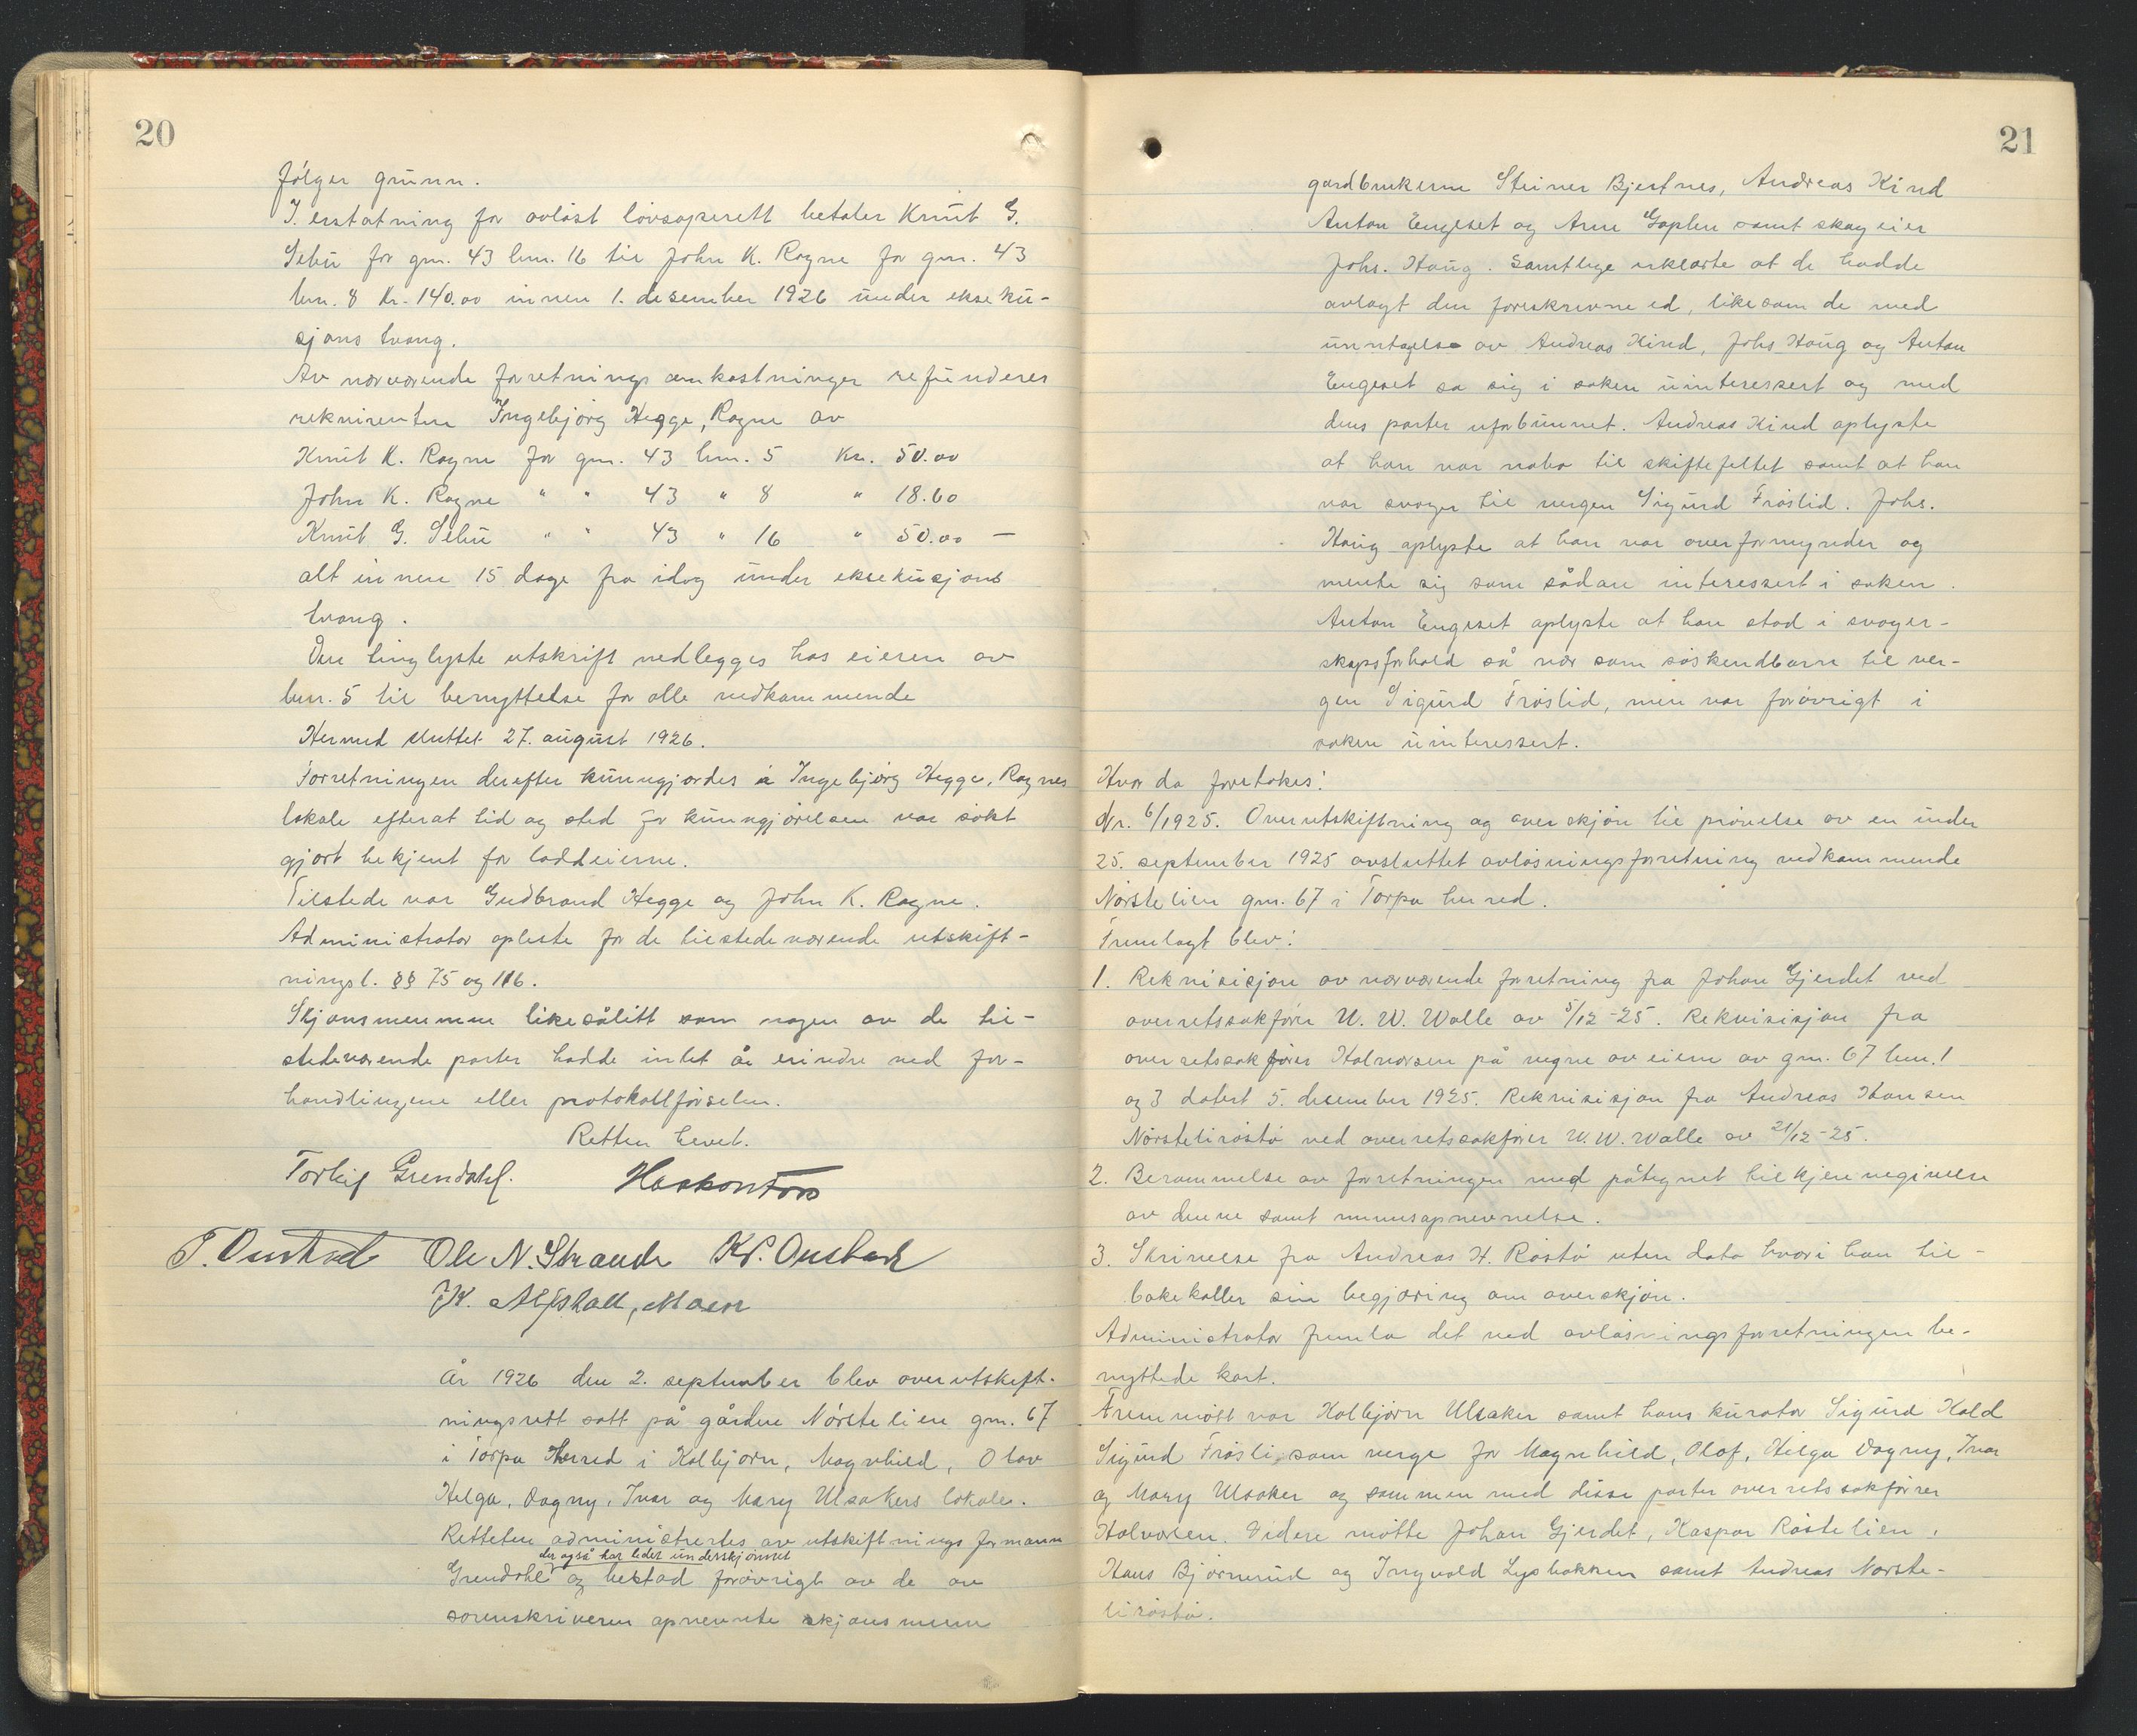 20
følger grunn.
I erstatning for avløst løvsoprett betaler Knut G.
Sebu for gnr. 43 bnr. 16 til John K. Rogne for gnr. 43
bnr. 8 kr. 140.00 innen 1. desember 1926 under ekseku-
sjons tvang.
Av nærværende forretnings omkostninger refunderes
rekvirenten Ingebjørg Hegge, Rogne av
Knut K. Rogne for gnr. 43 bnr. 5 Kr. 50.00
John K. Rogne " " 43 " 8 " 18.60
Knut G. Sebu " " 43 " 16 " 50.00 —
alt innen 15 dage fra idag under eksekusjons
tvang.
Den tinglyste utskrift nedlegges hos eieren av
bnr. 5 til benyttelse for alle vedkommende
Hermed sluttet 27. august 1926.
Forretningen derefter kunngjordes i Ingebjørg Hegge, Rognes
lokale efterat tid og sted for kunngjørelsen var søkt
gjort bekjent for loddeierne.
Tilstede var Gudbrand Hegge og John K. Rogne.
Administrator opleste for de tilstedeværende utskift-
ningsl. §§ 75 og 116.
Skjønsmennene likesålitt som nogen av de til-
stedeværende parter hadde intet å erindre ved for-
handlingene eller protokollførselen.
Retten hevet.
Torleif Grendahl. Haakon Foss
T. Onstad Ole N. Strande K. P. Onstad
K. Alfstad, Moen
År 1926 den 2. september blev overutskift-
ningsrett satt på gården Nørstelien gnr. 67
i Torpa Herred i Kolbjørn, Magnhild, Olav
Helga, Dagny, Ivar og Mary Ulsakers lokale.
Retteten administrertes av utskiftningsformann
der også har ledet underskjønnet
Grendahl og bestod forøvrigt av de av
sorenskriveren opnevnte skjønsmenn
21
gardbrukerne Steiner Bjertnes, Andreas Kind
Anton Engeset og Arne Goplen samt skogeier
Johs. Haug. Samtlige erklærte at de hadde
avlagt den foreskrevne ed, likesom de med
unntagelse av Andreas Kind, Johs Haug og Anton
Engeset sa sig i saken uinteressert og med
dens parter uforbunnet. Andreas Kind oplyste
at han var nabo til skiftefeltet samt at han
var svoger til vergen Sigurd Frøslid. Johs.
Haug oplyste at han var overformynder og
mente sig som sådan interessert i saken.
Anton Engeset oplyste at han stod i svoger-
skapsforhold så nær som søskendbarn til ver-
gen Sigurd Frøslid, men var forøvrigt i
saken uinteressert.
Hvor da foretokes:
Nr. 6/1925. Overutskiftning og overskjøn til prøvelse av en under
25. september 1925 avsluttet avløsningsforretning vedkommende
Nørstelien gnr. 67 i Torpa herred.
Fremlagt blev:
1. Rekvisisjon av nærværende forretning fra Johan Gjerdet ved
overrettssakfører U. W. Walle av 5/12-25. Rekvisisjon fra
overrettssakfører Halvorsen på vegne av eierne av gnr. 67 bnr. 1
og 3 datert 5. desember 1925. Rekvisisjon fra Andreas Hansen
Nørstelirøstø ved overrettssakfører U. W. Walle av 21/12-25.
2. Berammelse av forretningen med påtegnet tilkjennegivelse
av denne samt mennsopnevnelse.
3. Skrivelse fra Andreas H. Røstø uten dato hvori han til-
bakekaller sin begjæring om overskjøn.
Administrator fremla det ved avløsningsforretningen be-
nyttede kart.
Fremmøtt var Kolbjørn Ulsaker samt hans kurator Sigurd Kold
Sigurd Frøsli, som verge for Magnhild, Olof, Helga Dagny, Ivar
og Mary Ulsaker og sammen med disse parter overrettssakfører
Halvorsen. Videre møtte Johan Gjerdet, Kaspar Røstelien,
Hans Bjørnerud og Ingvald Lysbakken samt Andreas Nørste-
lirøstø.